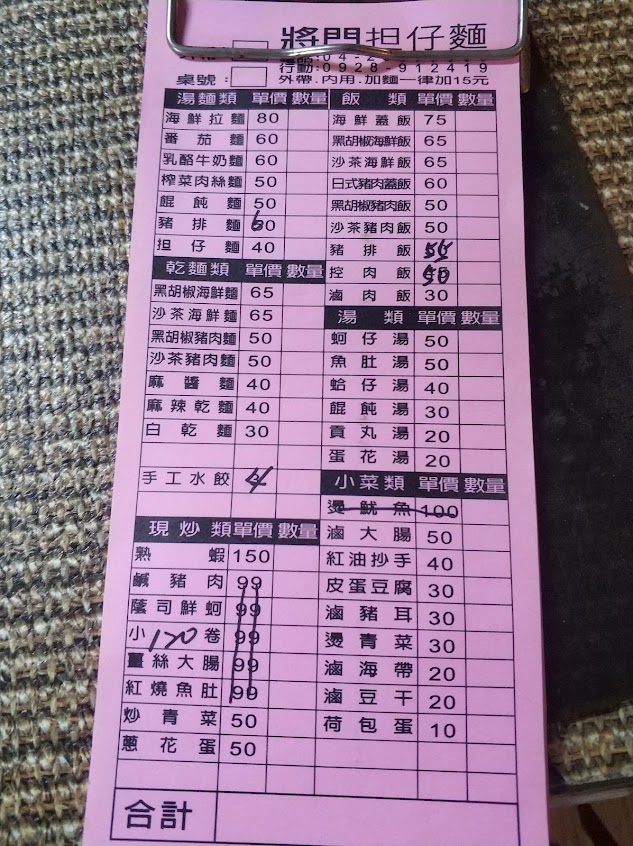 將門担仔麵
行動:0928-912419
桌號:
外帶.肉用.加麵一律加15元
湯麵類 單價 數量
海鮮拉麵 80
番茄麵 60
乳酪牛奶麵 60
榨菜肉絲麵 50
餛飩麵 50
豬排麵 60
担仔麵 40
乾麵類 單價 數量
黑胡椒海鮮麵 65
沙茶海鮮麵 65
黑胡椒豬肉麵 50
沙茶豬肉麵 50
麻醬麵 40
麻辣乾麵 40
白乾麵 30
手工水餃 4
現炒類 單價 數量
熟蝦 150
鹹豬肉 99
蔭司鮮蚵 99
小卷 99
120
薑絲大腸 99
紅燒魚肚 99
炒青菜 50
蔥花蛋 50
飯類 單價 數量
海鮮蓋飯 75
黑胡椒海鮮飯 65
沙茶海鮮飯 65
日式豬肉蓋飯 60
黑胡椒豬肉飯 50
沙茶豬肉飯 50
豬排飯 55
控肉飯 50
滷肉飯 30
湯類 單價 數量
蚵仔湯 50
魚肚湯 50
蛤仔湯 40
餛飩湯 30
貢丸湯 20
蛋花湯 20
小菜類 單價 數量
燙魷魚 100
滷大腸 50
紅油抄手 40
皮蛋豆腐 30
滷豬耳 30
燙青菜 30
滷海帶 20
滷豆干 20
荷包蛋 10
合計